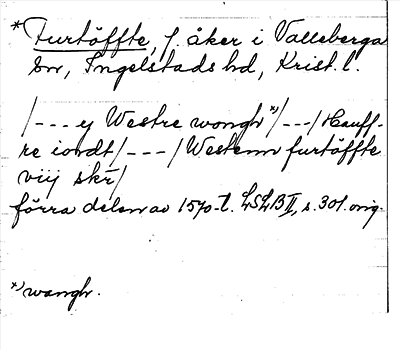 *Furtöffte, f. åker i Valleberga
sn, Ingelstads hd, Krist. l.
/--- ej Westre wongh *)/---/ Hauff-
re iordt/---/ Westenn furtöffte
viij skr/
förra delen av 1570-t. LSLB II, s. 301. orig.
*) wangh.